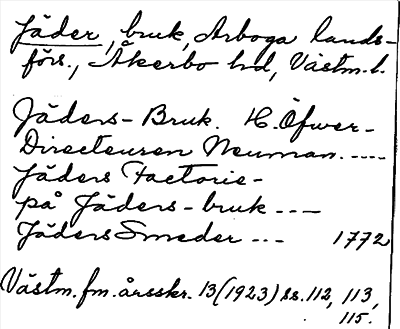 Jäder, bruk, Arboga lands-
förs., Åkerbo hd, Västm. l.
Jäders-Bruk. H. Öfwer-
Directeuren Neuman. ----
Jäders Factorie-
på Jäders-bruk ---
Jäders Smeder --- 1772
Västm. fm. årsskr. 13 (1923) ss. 112, 113,
115.